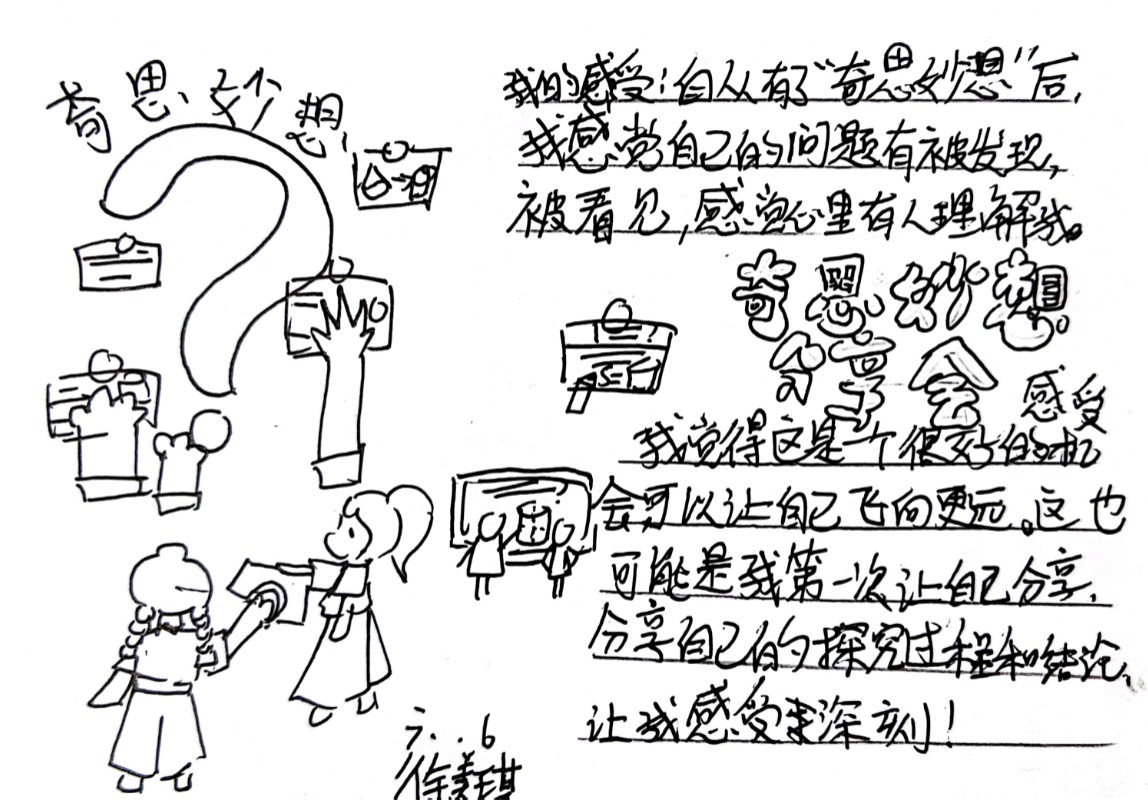 奇思妙想
我的感受：自从有了“奇思妙想”后，
我感觉自己的问题有被发现，
被看见，感觉心里有人理解我。
奇思妙想
分享会
感受
我觉得这是一个很好的机
会可以让自己飞向更远。这也
可能是我第一次让自己分享，
分享自己的探究过程和结论，
让我感受深刻！
六.6